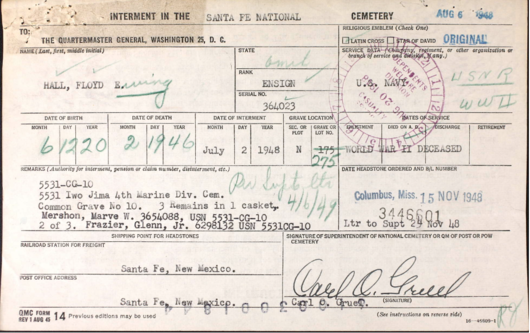 INTERMENT IN THE SANTA FE NATIONAL CEMETERY AUG 6 1948
TO:
THE QUARTERMASTER GENERAL, WASHINGTON 25, D. C.
RELIGIOUS EMBLEM (Check One)
LATIN CROSS STAR OF DAVID ORIGINAL
NAME (Last, first, middle initial)
HALL, FLOYD Ewing
STATE
omit
RANK
ENSIGN
SERIAL NO.
364023
SERVICE DATA (Company, regiment, or other organization or branch of service and
U.S. NAVY
USNR
WWII
DATE OF BIRTH DATE OF DEATH DATE OF INTERMENT GRAVE LOCATION DATES OF SERVICE
MONTH DAY YEAR MONTH DAY YEAR MONTH DAY YEAR SEC. OR PLOT GRAVE OR LOT NO. DIED ON A. D. DISCHARGE RETIREMENT
6 12 20 2 19 46 July 2 1948 N 175 WORLD WAR II DECEASED
275
REMARKS (Authority for interment, pension or claim number, disinterment, etc.)
DATE HEADSTONE ORDERED AND B/L NUMBER
5531-CG-10
5531 Iwo Jima 4th Marine Div. Cem.
Common Grave No 10. 3 Remains in 1 casket,
Mershon, Marve W. 3654088, USN 5531-CG-10
2 of 3. Frazier, Glenn, Jr. 6298132 USN 5531CG-10
Per Supts ltr
4/6/49
Columbus, Miss. 15 NOV 1948
3446601
Ltr to Supt 29 Nov 48
SHIPPING POINT FOR HEADSTONES
RAILROAD STATION FOR FREIGHT
Santa Fe, New Mexico.
SIGNATURE OF SUPERINTENDENT OF NATIONAL CEMETERY OR QM OF POST OR POW CEMETERY
Carl O. Gruel
POST OFFICE ADDRESS
Santa Fe, New Mexico.
Carl O. Gruel
(SIGNATURE)
QMC FORM
REV 1 AUG 45 14 Previous editions may be used
(See instructions on reverse side)